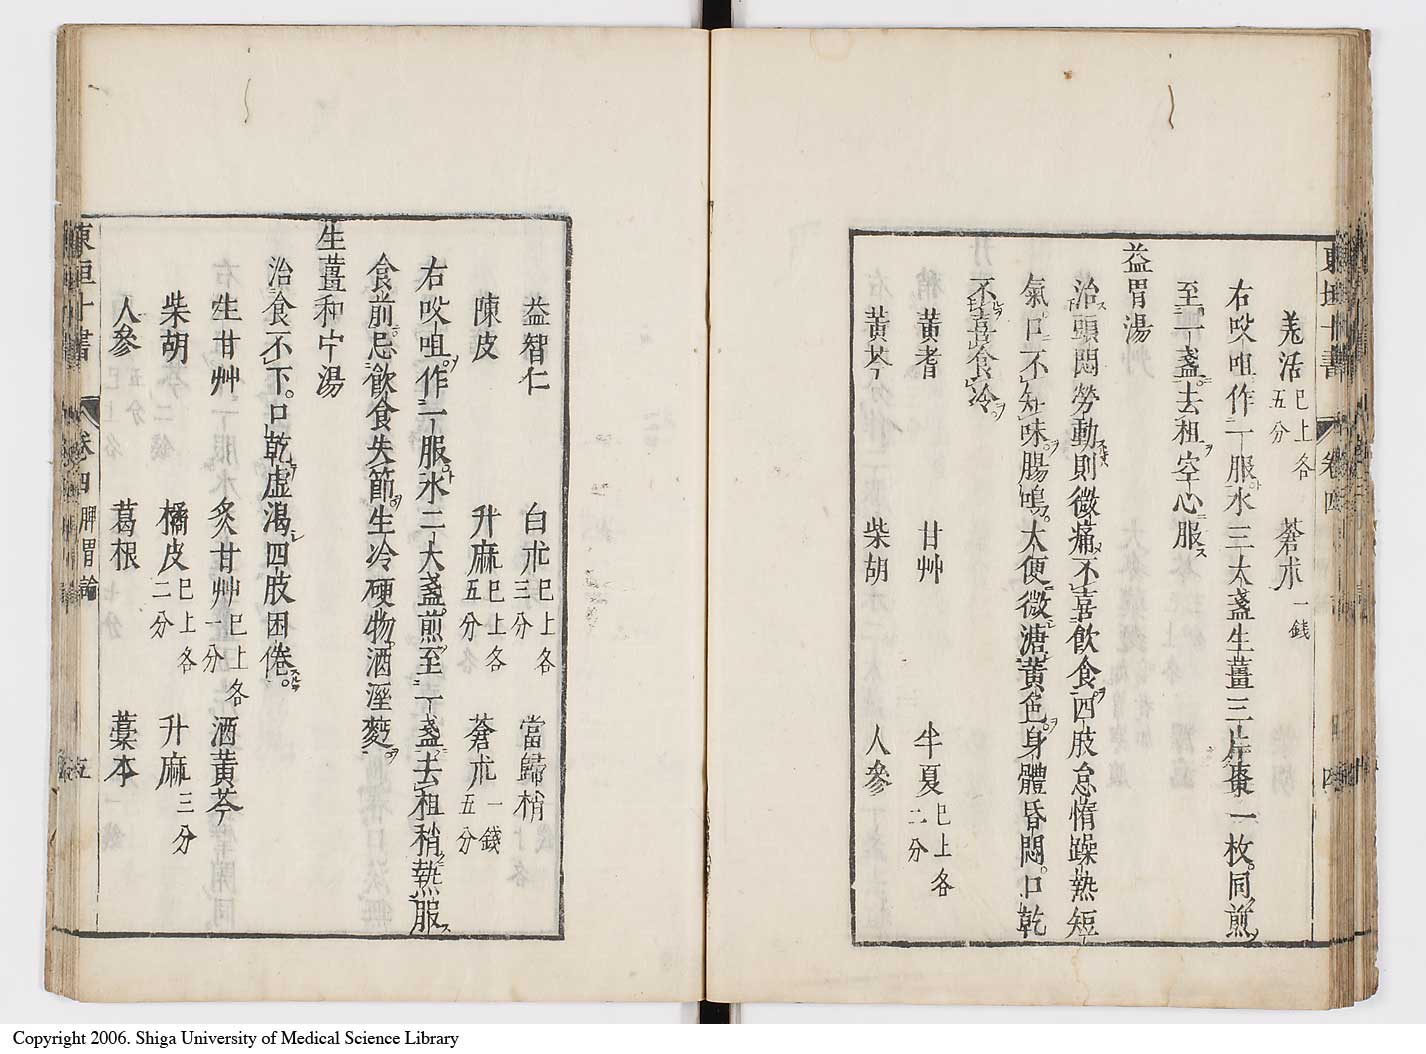 羌活已上各五分　蒼朮一錢
右㕮咀作一服水三大盞生薑三片棗一枚同煎
至一盞去柤空心服
益胃湯
治頭悶勞動則微痛不喜飲食四肢怠惰躁熱短
氣口不知味腸鳴大便微溏黃色身體昏悶口乾
不喜食冷
黃耆　甘艸　半夏已上各二分
黃芩　柴胡　人參
益智仁　白朮已上各三分　當歸梢
陳皮　升麻已上各五分　蒼朮一錢五分
右㕮咀作一服水二大盞煎至一盞去柤稍熱服
食前忌飲食失節生冷硬物酒溼麪
生薑和中湯
治食不下口乾虛渴四肢困倦
生甘艸　炙甘艸已上各一分　酒黃芩
柴胡　橘皮已上各二分　升麻三分
人參　葛根　藁本
東垣十書　卷四　脾胃論　五
Copyright 2006. Shiga University of Medical Science Library